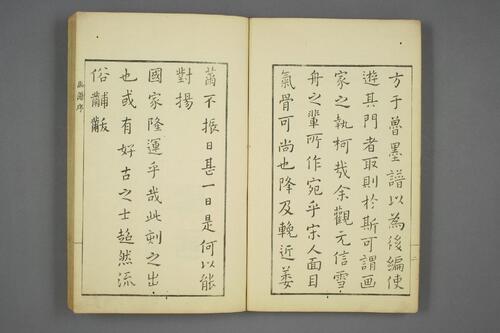 方于魯墨譜以為後編使
遊其門者取則於斯可謂畫
家之執柯哉余觀元信雪
舟之輩所作宛乎宋人面目
氣骨可尚也降及輓近萎
薾不振日甚一日是何以能
對揚
國家隆運乎哉此刻之出
也或有好古之士超然流
俗黼黻